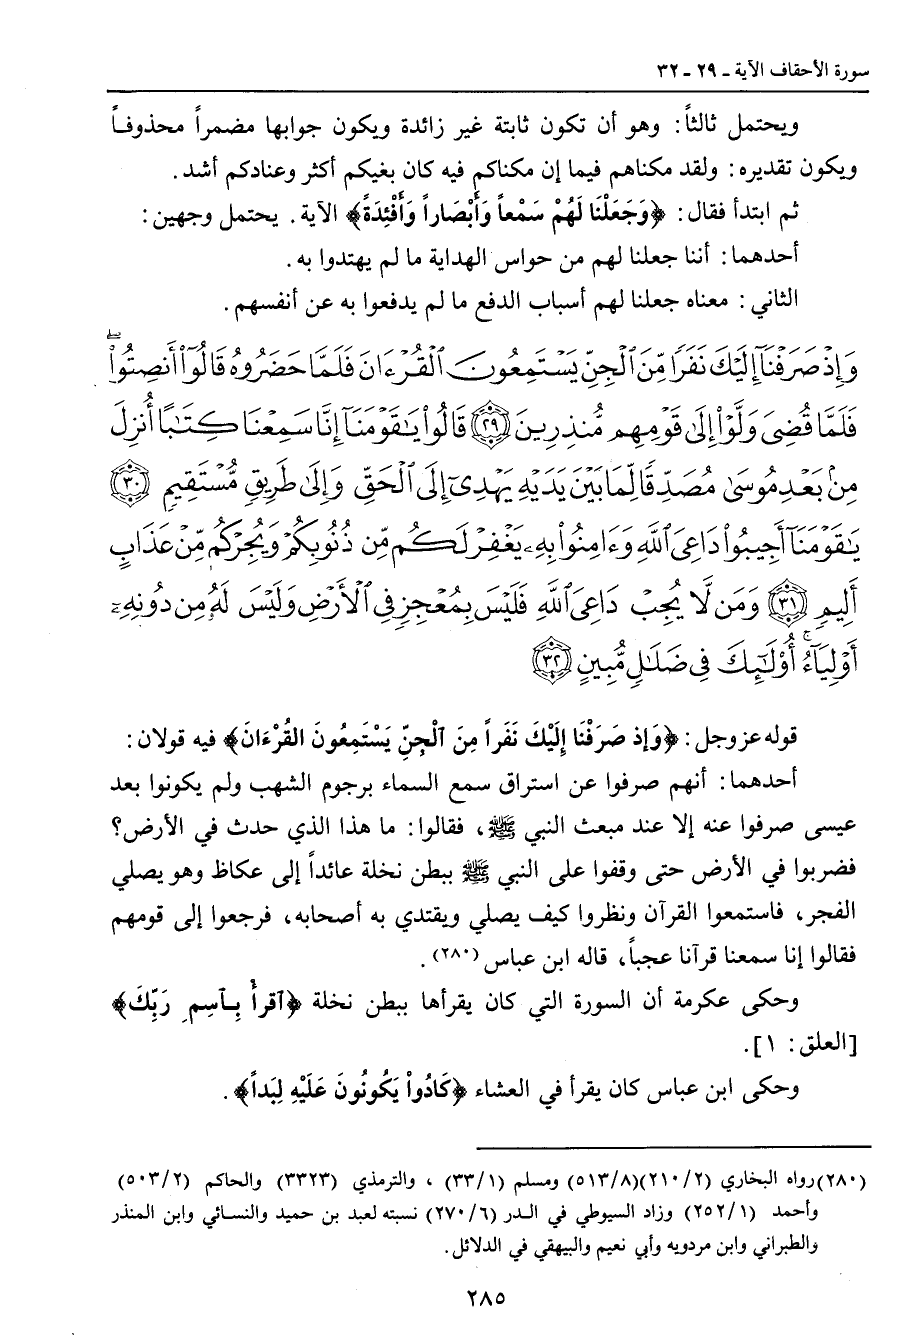 سورة الأحقاف الآية ـ ٢٩ ـ ٣٢
ويحتمل ثالثاً: وهو أن تكون ثابتة غير زائدة ويكون جوابها مضمراً محذوفاً
ويكون تقديره: ولقد مكناهم فيما إن مكناكم فيه كان بغيكم أكثر وعنادكم أشد.
ثم ابتدأ فقال: ﴿وَجَعَلْنَا لَهُمْ سَمْعاً وَأَبْصَاراً وَأَفْئِدَةً﴾ الآية. يحتمل وجهين:
أحدهما: أننا جعلنا لهم من حواس الهداية ما لم يهتدوا به.
الثاني: معناه جعلنا لهم أسباب الدفع ما لم يدفعوا به عن أنفسهم.
وَإِذْ صَرَفْنَآ إِلَيْكَ نَفَرًا مِّنَ ٱلْجِنِّ يَسْتَمِعُونَ ٱلْقُرْءَانَ فَلَمَّا حَضَرُوهُ قَالُوٓا۟ أَنصِتُوا۟ۖ
فَلَمَّا قُضِىَ وَلَّوْا۟ إِلَىٰ قَوْمِهِم مُّنذِرِينَ ۝٢٩ قَالُوا۟ يَٰقَوْمَنَآ إِنَّا سَمِعْنَا كِتَٰبًا أُنزِلَ
مِنۢ بَعْدِ مُوسَىٰ مُصَدِّقًا لِّمَا بَيْنَ يَدَيْهِ يَهْدِىٓ إِلَى ٱلْحَقِّ وَإِلَىٰ طَرِيقٍ مُّسْتَقِيمٍ ۝٣٠
يَٰقَوْمَنَآ أَجِيبُوا۟ دَاعِىَ ٱللَّهِ وَءَامِنُوا۟ بِهِۦ يَغْفِرْ لَكُم مِّن ذُنُوبِكُمْ وَيُجِرْكُم مِّنْ عَذَابٍ
أَلِيمٍ ۝٣١ وَمَن لَّا يُجِبْ دَاعِىَ ٱللَّهِ فَلَيْسَ بِمُعْجِزٍ فِى ٱلْأَرْضِ وَلَيْسَ لَهُۥ مِن دُونِهِۦٓ
أَوْلِيَآءُۚ أُو۟لَٰٓئِكَ فِى ضَلَٰلٍ مُّبِينٍ ۝٣٢
قوله عز وجل: ﴿وَإِذ صَرَفْنَا إِلَيْكَ نَفَراً مِنَ ٱلْجِنِّ يَسْتَمِعُونَ القُرْءَانَ﴾ فيه قولان:
أحدهما: أنهم صرفوا عن استراق سمع السماء برجوم الشهب ولم يكونوا بعد
عيسى صرفوا عنه إلا عند مبعث النبي ﷺ، فقالوا: ما هذا الذي حدث في الأرض؟
فضربوا في الأرض حتى وقفوا على النبي ﷺ ببطن نخلة عائداً إلى عكاظ وهو يصلي
الفجر، فاستمعوا القرآن ونظروا كيف يصلي ويقتدي به أصحابه، فرجعوا إلى قومهم
فقالوا إنا سمعنا قرآنا عجباً، قاله ابن عباس (٢٨٠).
وحكى عكرمة أن السورة التي كان يقرأها ببطن نخلة ﴿ٱقرأْ بِٱسمِ رَبِّكَ﴾
[العلق: ١].
وحكى ابن عباس كان يقرأ في العشاء ﴿كَادُواْ يَكُونُونَ عَلَيْهِ لِبَداً﴾.
(٢٨٠) رواه البخاري (٢١٠/٢)(٥١٣/٨) ومسلم (٣٣/١) ، والترمذي (٣٣٢٣) والحاكم (٥٠٣/٢)
وأحمد (٢٥٢/١) وزاد السيوطي في الدر (٢٧٠/٦) نسبته لعبد بن حميد والنسائي وابن المنذر
والطبراني وابن مردويه وأبي نعيم والبيهقي في الدلائل.
٢٨٥